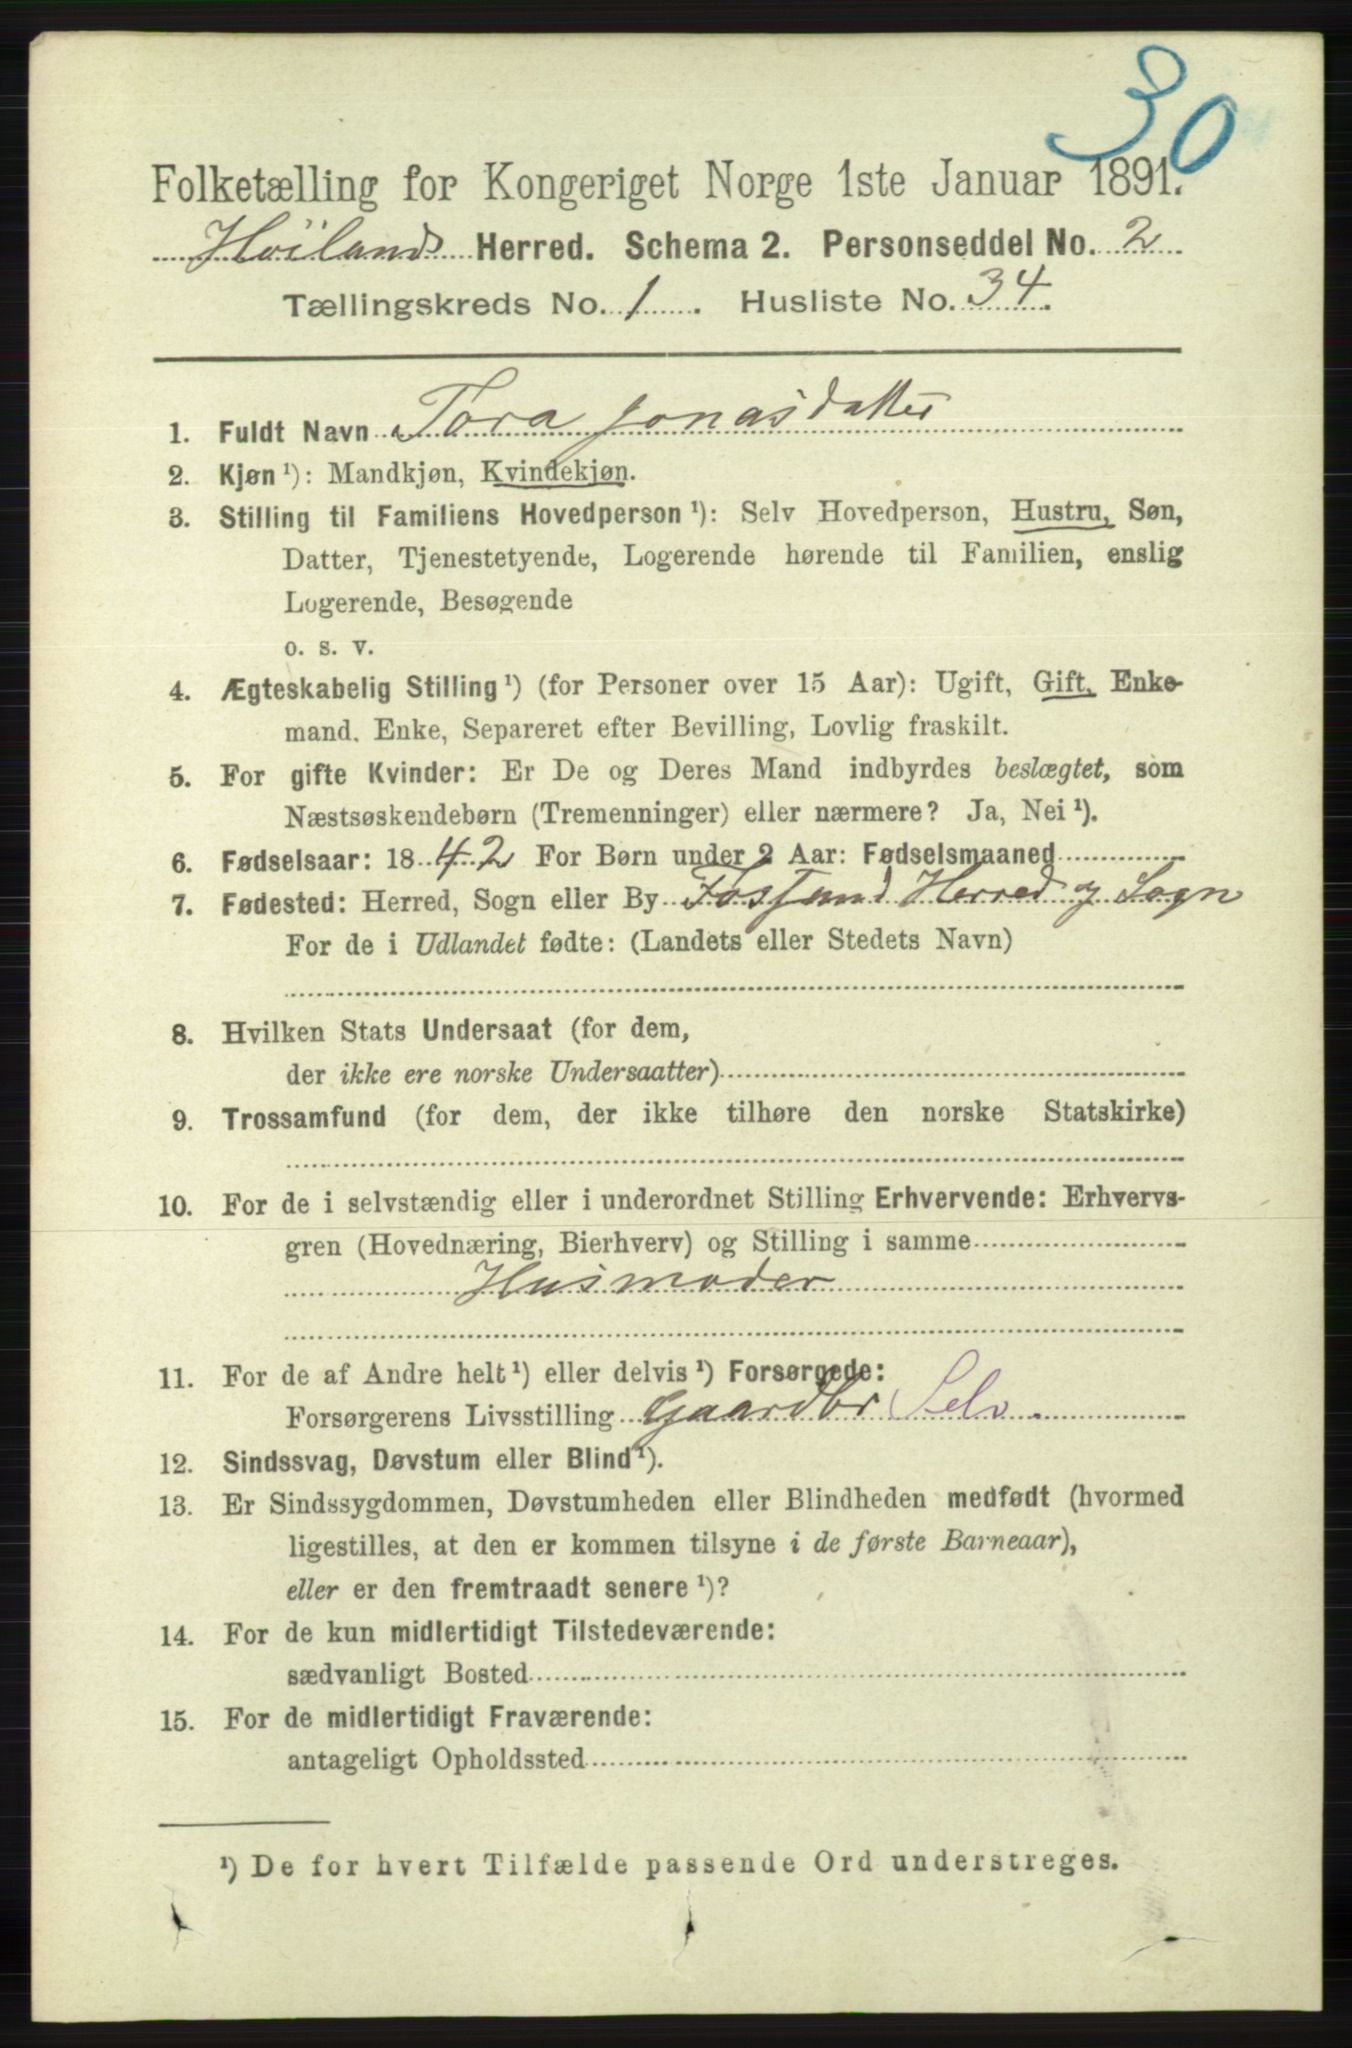 30
Folketælling for Kongeriget Norge 1ste Januar 1891.
Höilands Herred. Schema 2. Personseddel No. 2
Tællingskreds No. 1. Husliste No. 34.
1. Fuldt Navn Tora Jonasdatter
2. Kjøn ¹): Mandkjøn, Kvindekjøn.
3. Stilling til Familiens Hovedperson ¹): Selv Hovedperson, Hustru, Søn,
Datter, Tjenestetyende, Logerende hørende til Familien, enslig
Logerende, Besøgende
o. s. v.
4. Ægteskabelig Stilling ¹) (for Personer over 15 Aar): Ugift, Gift, Enke-
mand. Enke, Separeret efter Bevilling, Lovlig fraskilt.
5. For gifte Kvinder: Er De og Deres Mand indbyrdes beslægtet, som
Næstsøskendebørn (Tremenninger) eller nærmere? Ja, Nei ¹).
6. Fødselsaar: 1842 For Børn under 2 Aar: Fødselsmaaned
7. Fødested: Herred, Sogn eller By Fossand Herred og Sogn
For de i Udlandet fødte: (Landets eller Stedets Navn)
8. Hvilken Stats Undersaat (for dem,
der ikke ere norske Undersaatter)
9. Trossamfund (for dem, der ikke tilhøre den norske Statskirke)
10. For de i selvstændig eller i underordnet Stilling Erhvervende: Erhvervs-
gren (Hovednæring, Bierhverv) og Stilling i samme
Husmoder
11. For de af Andre helt ¹) eller delvis ¹) Forsørgede:
Forsørgerens Livsstilling Gaardbr Selv.
12. Sindssvag, Døvstum eller Blind ¹).
13. Er Sindssygdommen, Døvstumheden eller Blindheden medfødt (hvormed
ligestilles, at den er kommen tilsyne i de første Barneaar),
eller er den fremtraadt senere ¹)?
14. For de kun midlertidigt Tilstedeværende:
sædvanligt Bosted
15. For de midlertidigt Fraværende:
antageligt Opholdssted
¹) De for hvert Tilfælde passende Ord understreges.